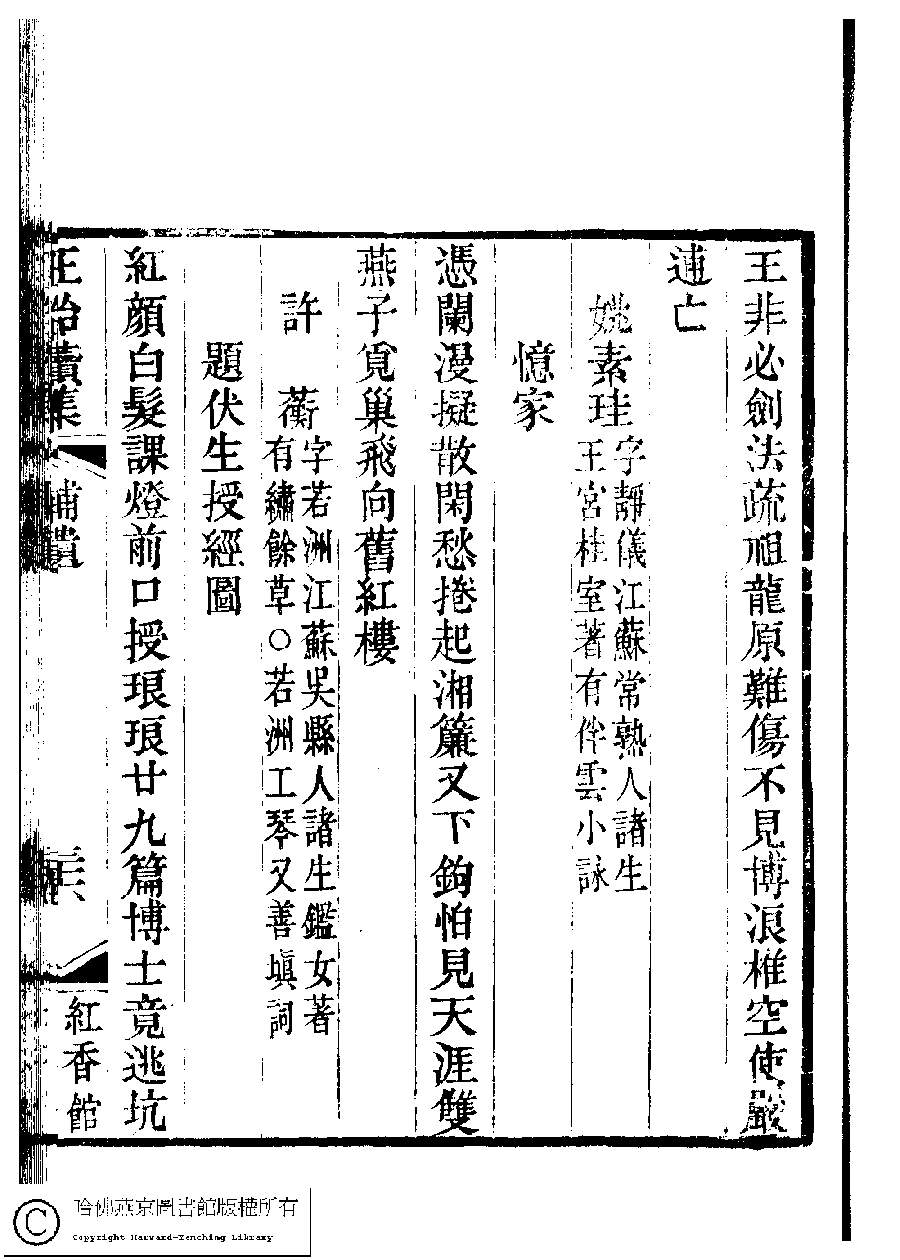 王非必劍法疏祖龍原難傷不見博浪椎空使嚴
逋亡
姚素珪字靜儀江蘇常熟人諸生
王宮桂室著有伴雲小詠
憶家
憑闌漫擬散閑愁捲起湘簾又下鉤怕見天涯雙
燕子覓巢飛向舊紅樓
許蘅字若洲江蘇吳縣人諸生鑑女著
有繡餘草○若洲工琴又善塡詞
題伏生授經圖
紅顔白髮課燈前口授琅琅廿九篇博士竟逃坑
補遺
紅香館
哈佛燕京圖書館版權所有
Copyright Harvard-Yenching Library